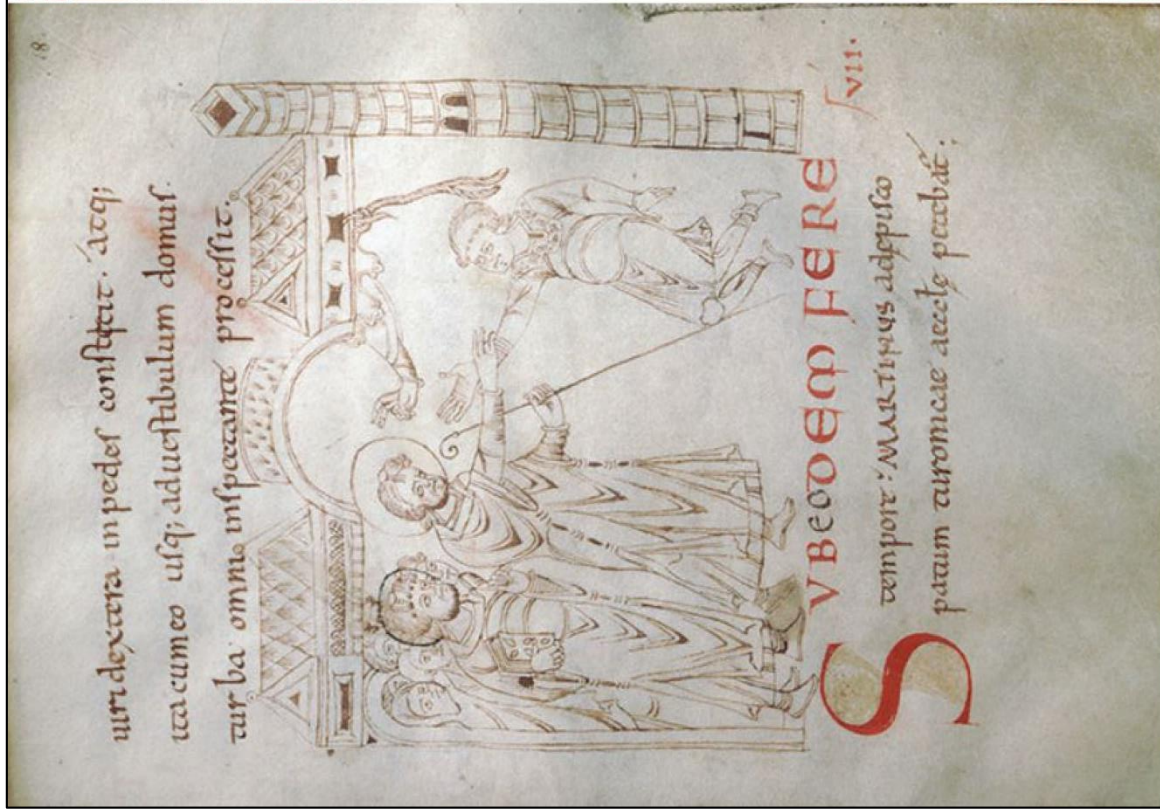 18.
uiri dextera inpedes constitit. Atq;
ita cumeo usq; aduestibulum domus.
turba omni inspectante processit.
SUB EODEM FERE VII.
tempore MARTINUS adepisco
patum turonicae aecclę petebat;